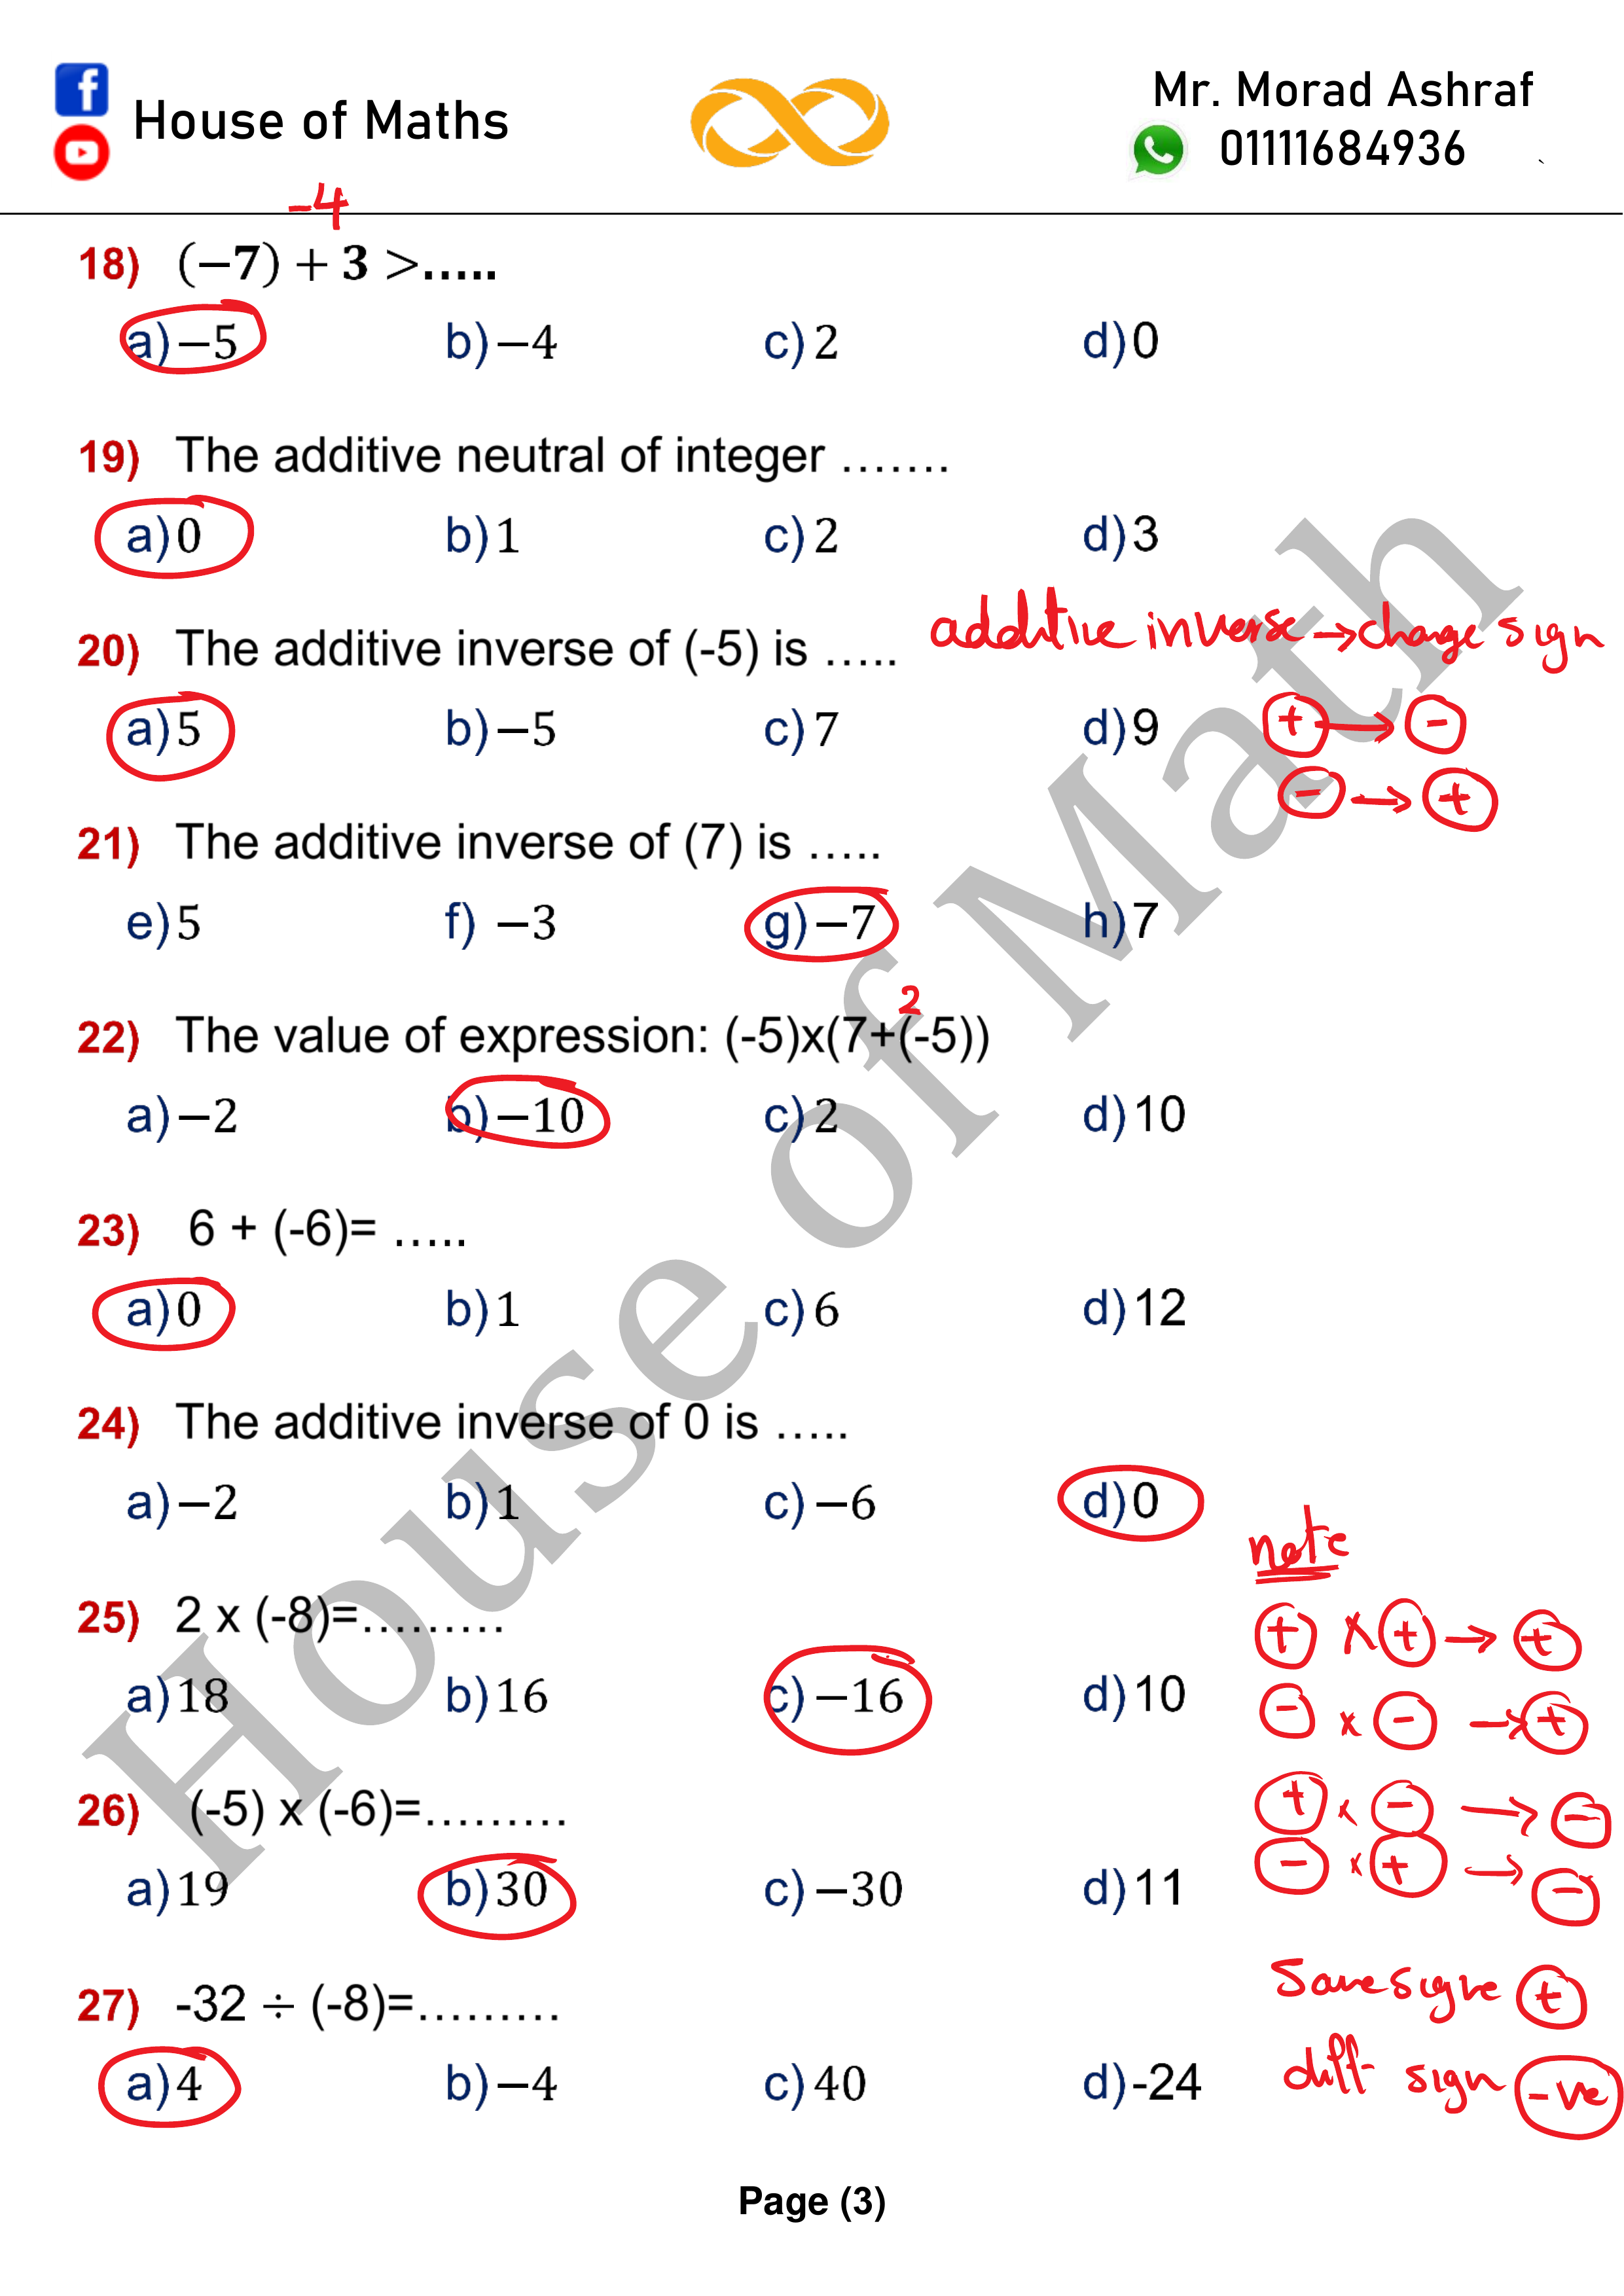 House of Maths
Mr. Morad Ashraf
01111684936
-4
18) (−7) + 3 >.....
a) −5 b) −4 c) 2 d) 0
19) The additive neutral of integer .......
a) 0 b) 1 c) 2 d) 3
20) The additive inverse of (-5) is .....
additive inverse → change sign
a) 5 b) −5 c) 7 d) 9
+ → -
- → +
21) The additive inverse of (7) is .....
e) 5 f) −3 g) −7 h) 7
2
22) The value of expression: (-5)x(7+(-5))
a) −2 b) −10 c) 2 d) 10
23) 6 + (-6)= .....
a) 0 b) 1 c) 6 d) 12
24) The additive inverse of 0 is .....
a) −2 b) 1 c) −6 d) 0
note
25) 2 x (-8)=.........
+ x + → +
a) 18 b) 16 c) −16 d) 10
- x - → +
26) (-5) x (-6)=.........
+ x - → -
- x + → -
a) 19 b) 30 c) −30 d) 11
27) -32 ÷ (-8)=.........
Same signe +
a) 4 b) −4 c) 40 d) -24
diff sign -ve
Page (3)
House of Math